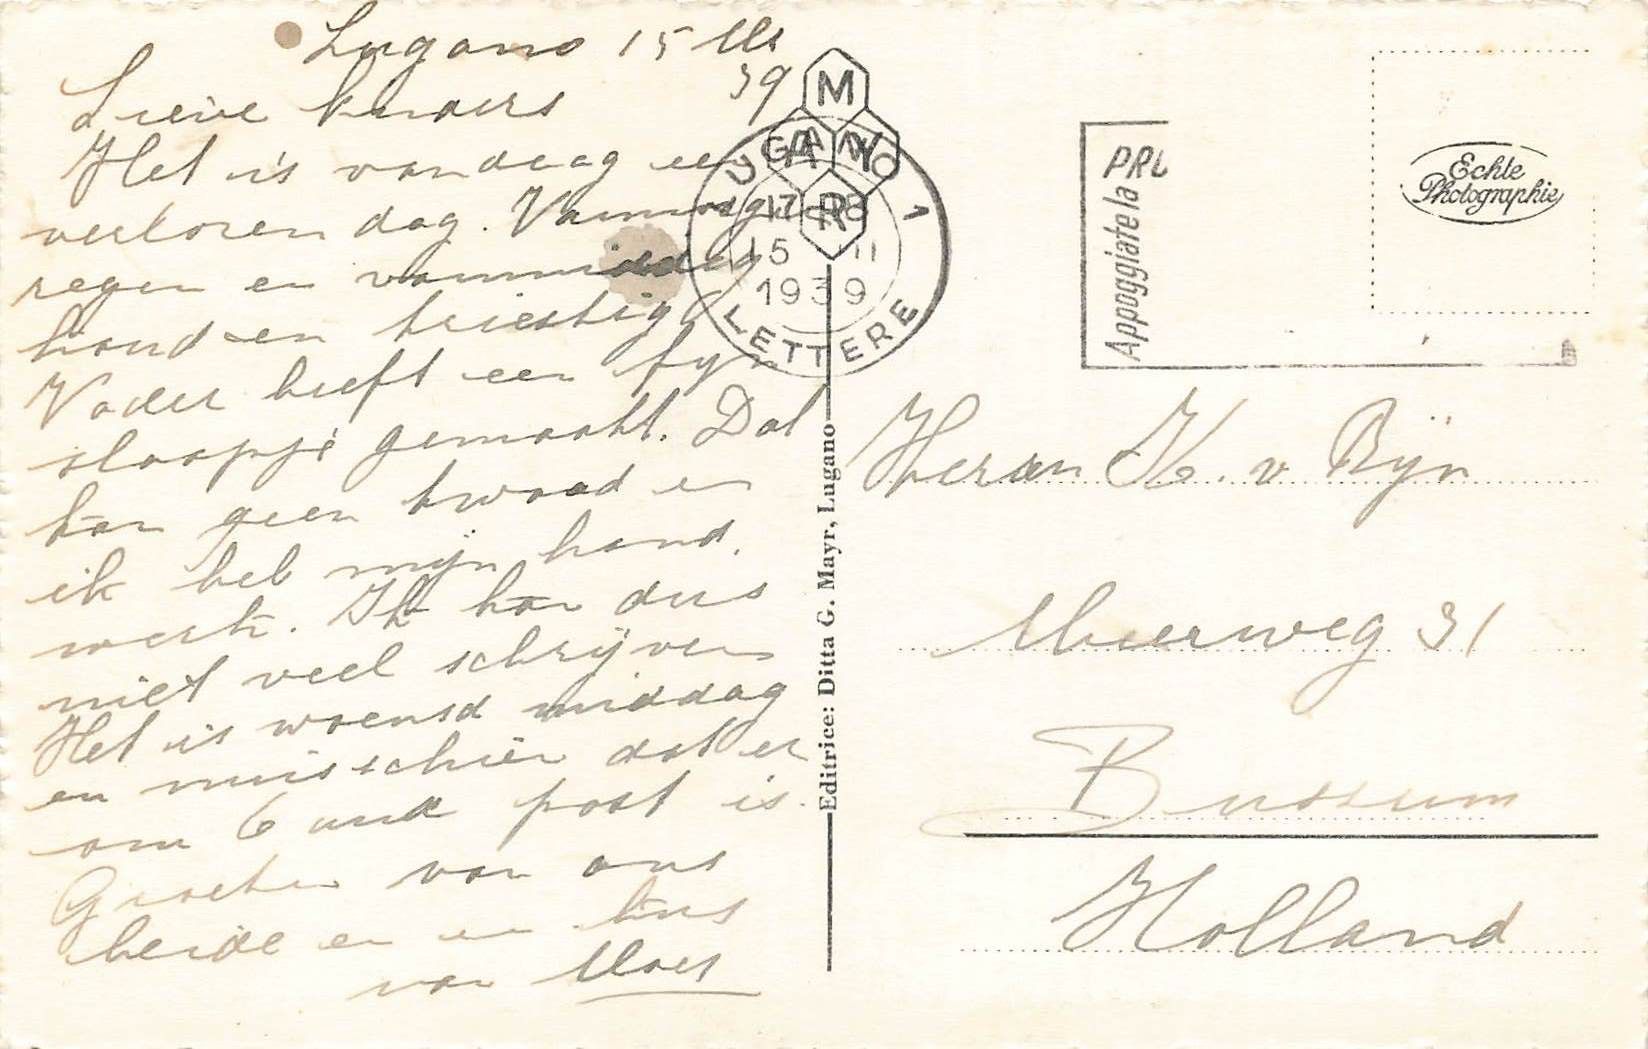 Lugano 15 Ms
39
Lieve kinders
Het is vandaag een
verloren dag. Vanmorgen
regen en vanmiddag
koud en triestig
Vader heeft een fyn
slaapje gemaakt. Dat
kan geen kwaad en
ik heb mijn hand.
werk. Ik kan dus
niet veel schrijven
Het is woensd middag
en misschien dat er
om 6 uur post is.
Groeten van ons
beide en een kus
van Moes
M
A Y
R
LUGANO 1
17-18
15 III
1939
LETTERE
Editrice: Ditta G. Mayr., Lugano
PRL
Appoggiate la
Echte
Photographie
Heren K. v Rÿn
Meerweg 31
Bussum
Holland